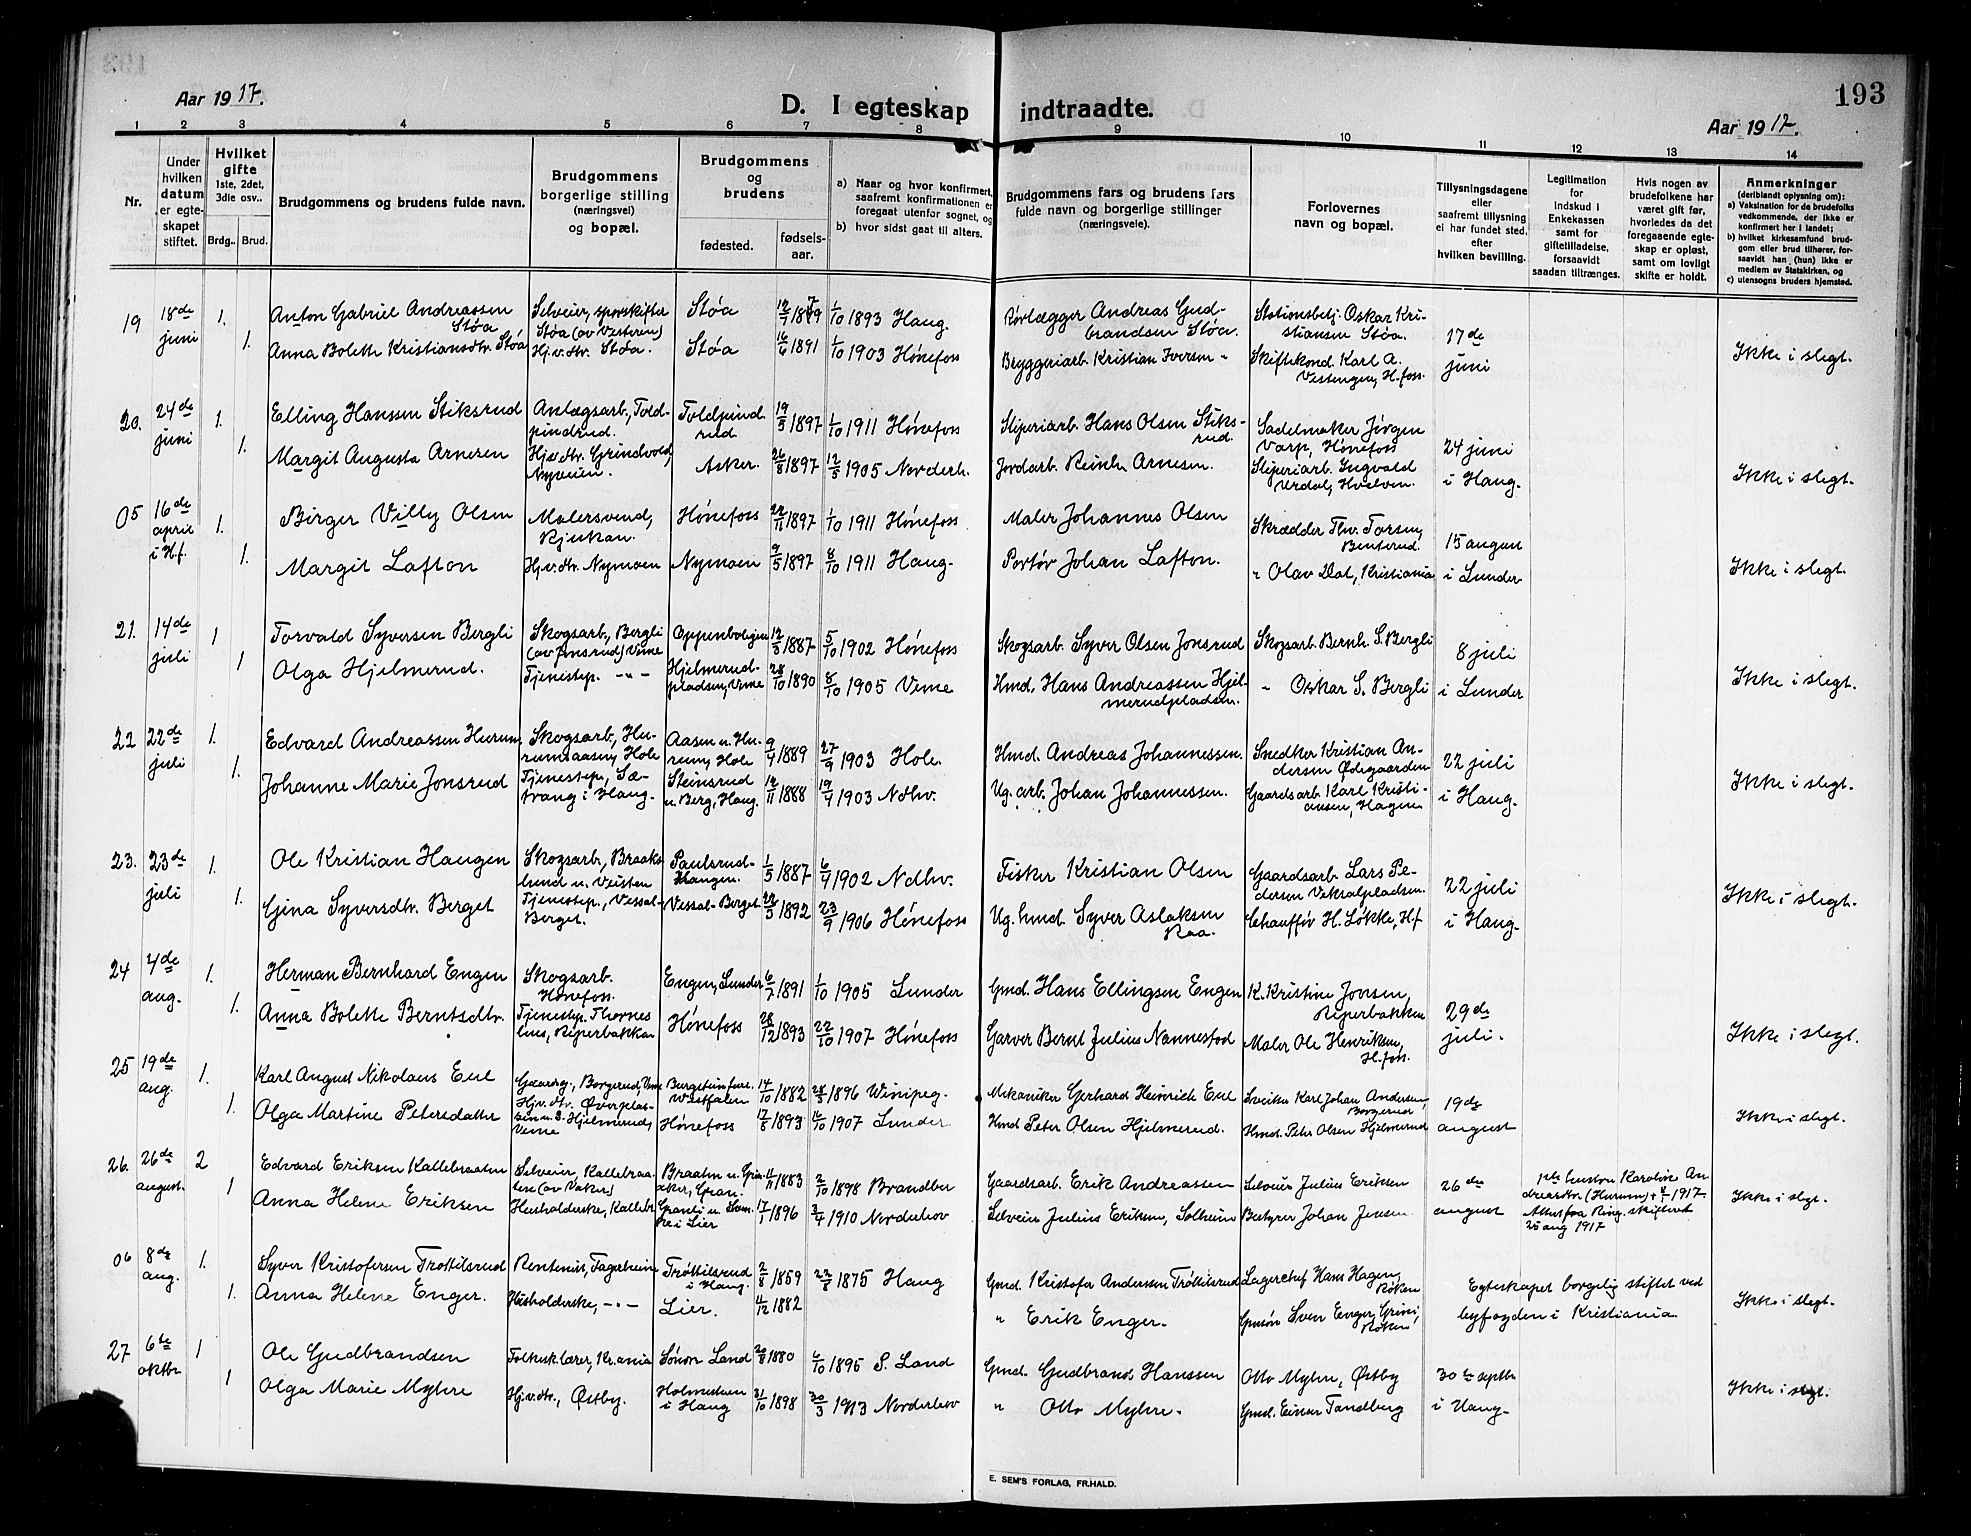 193
Aar 1917.
D. I egteskap indtraadte.
Aar 1917.
1 2 3 4 5 6 7 8 9 10 11 12 13 14
Nr.
Under hvilken datum er egteskapet stiftet.
Hvilket gifte 1ste, 2det, 3die osv..
Brdg.. Brud.
Brudgommens og brudens fulde navn.
Brudgommens borgerlige stilling (næringsvei) og bopæl.
Brudgommens og brudens
fødested. fødselsaar.
a) Naar og hvor konfirmert, saafremt konfirmationen er foregaat utenfor sognet, og
b) hvor sidst gaat til alters.
Brudgommens fars og brudens fars fulde navn og borgerlige stillinger (næringsveie).
Forlovernes navn og bopæl.
Tillysningsdagene eller saafremt tillysning ei har fundet sted, efter hvilken bevilling.
Legitimation for indskud i Enkekassen samt for giftetilladelse, forsaavidt saadan tiltrænges.
Hvis nogen av brudefolkene har været gift før, hvorledes da det foregaaende egteskap er opløst, samt om lovligt skifte er holdt.
Anmerkninger (deriblandt oplysning om):
a) Vaksination for de brudefolks vedkommende, der ikke er konfirmert her i landet;
b) hvilket kirkesamfund brudgom eller brud tilhører, forsaavidt han (hun) ikke er medlem av Statskirken, og
c) utensogns bruders hjemsted.
19 18de juni 1. Anton Gabriel Andreassen Støa Selveier, sporskifter Støa (av Vesteren) Støa 12/7 1879 1/10 1893 Haug. Rørlægger Andreas Gudbrandsen Støa. Stationsbetj. Oskar Kristiansen Støa. 17de juni
1. Anna Bolette Kristiansdtr. Støa Hj.v.dtr. Støa. Støa 16/6 1891 1/10 1903 Hønefoss Bryggeriarb. Kristian Iversen " Skiftekond. Karl A. Vestengen, H.foss. Ikke i slegt.
20. 24de juni 1. Elling Hanssen Stiksrud Anlægsarb., Toldpindrud. Toldpindrud 19/5 1897 1/10 1911 Hønefoss Sliperiarb. Hans Olsen Stiksrud. Sadelmaker Jørgen Varp, Hønefoss 24 juni i Haug.
1. Margit Augusta Arnesen Hj.v.dtr. Grindvold, Nyveien. Asker. 26/8 1897 12/5 1905 Norderh. Jordarb. Reinh. Arnesen. Sliperiarb. Ingvald Urdal, Hvelven. Ikke i slegt.
05 16de april i H.f. 1. Birger Villy Olsen Malersvend, Rjukan. Hønefoss 22/11 1897 1/10 1911 Hønefoss Maler Johannes Olsen Skrædder Thv. Torsen, Benterud. 15 august i Lunder
1. Margit Lafton Hj.v.dtr. Nymoen Nymoen 9/5 1897 8/10 1911 Haug. Portør Johan Lafton. " Olav Dal, Kristiania Ikke i slegt.
21. 14de juli 1 Torvald Syversen Bergli Skogsarb., Bergli (av Jonsrud) Veme Oppenboligen 12/5 1887 5/10 1902 Hønefoss Skogsarb. Syver Olsen Jonsrud Skogsarb. Bernh. S. Bergli 8 juli i Lunder
1 Olga Hjelmerud. Tjenestep. -"- Hjelmerudpladsen, Veme 28/10 1890 8/10 1905 Veme Hmd. Hans Andreassen Hjelmerudpladsen. " Oskar S. Bergli Ikke i slegt.
22 22de juli 1. Edvard Andreassen Hurum Skogsarb., Hurumsaasen, Hole Aasen u. Hurum, Hole 9/4 1889 27/9 1903 Hole. Hmd. Andreas Johannessen. Snedker Kristian Andersen Ødegaarden 22 juli i Haug.
1. Johanne Marie Jonsrud Tjenestep., Sætrang i Haug. Steinsrud u. Berg, Haug. 12/11 1888 19/4 1903 Ndhv. Ug. arb. Johan Johannessen. Gaardsarb. Karl Kristiansen, Hagen Ikke i slegt.
23. 23de juli 1. Ole Kristian Haugen Skogsarb., Braaksbund u. Veisten Paulsrud-Haugen. 1/5 1887 6/4 1902 Ndhv. Fisker Kristian Olsen Gaardsarb. Lars Pedersen Veksalpladsen. 22 juli i Haug.
1. Gina Syversdtr. Berget Tjenestep., Vessal-Berget. Vessal-Berget 22/5 1892 23/9 1906 Hønefoss Ug. hmd. Syver Aslaksen Raa. Chauffør H. Løkke, H.f. Ikke i slegt.
24 4de aug. 1. Herman Bernhard Engen Skogsarb. Hønefoss. Engen, Lunder 6/7 1891 1/10 1905 Lunder Gmd. Hans Ellingsen Engen K. Kristine Jonsen, Reperbakken 29de juli.
1. Anna Bolette Berntsdtr. Tjenestep. Thorneslius, Reperbakka Hønefoss 28/12 1893 22/10 1907 Hønefoss Garver Bernt Julius Nannestad Maler Ole Henriksen, H.foss. Ikke i slegt.
25 19de aug. 1. Karl August Nikolaus Eul Gaardsg., Borgerud, Veme Westfalen 14/10 1882 28/5 1896 Winipeg. Mekaniker Gerhard Heinrich Eul Sveitser Karl Johan Andersen, Borgerud 19de august
1. Olga Martine Petersdatter Hj.v.dtr. Øverplassen u. S. Hjelmerud, Veme Hønefoss 17/8 1893 16/10 1907 Lunder. Hmd Peter Olsen Hjelmerud. Hmd. Peter Olsen Hjelmerud Ikke i slegt.
26. 26de august. 2 Edvard Eriksen Kallebraaten Selveier, Kallebraaten (av Vaker) Braaten u. Granaker, Gran. 11/11 1883 2/10 1898 Brandbu Gaardsarb. Erik Andreassen Selveier Julius Eriksen 26de august 1ste hustru Karoline Andreasdtr. (Hurum) + 8/1 1917. Attest fra Ring. skifteret 25 aug 1917
1 Anna Helene Eriksen Husholderske, Kallebr. Granli u. Lomke i Lier 17/1 1896 3/4 1910 Norderhov Selveier Julius Eriksen, Solheim Bestyrer Johan Jensen. Ikke i slegt.
06 8de aug. 1. Syver Kristofersen Trøttilsrud Rentenist, Fagerheim Trøttilsrud i Haug. 2/8 1859 22/8 1875 Haug Gmd. Kristofer Anderssen Trøttilsrud Lagerchef Hans Hagen, Røken Egteskapet borgelig stiftet ved byfogden i Kristiania
1. Anna Helene Enger. Husholderske, -"- Lier. 11/12 1882 " Erik Enger. Gmsøn Sven Enger, Grini, Røken Ikke i slegt.
27 6te oktbr 1 Ole Gudbrandsen Folkesk.lærer, Kr.ania Søndre Land 20/8 1880 6/10 1895 S. Land Gmd. Gudbrand Hanssen Otto Myhre, Østby 30te septbr i Haug.
1 Olga Marie Myhre Hj.v.dtr., Østby. Holmestuen i Haug 31/10 1898 30/3 1913 Norderhov " Otto Myhre. Gmd. Einar Tandberg Ikke i slegt.
E. SEM'S FORLAG, FR.HALD.